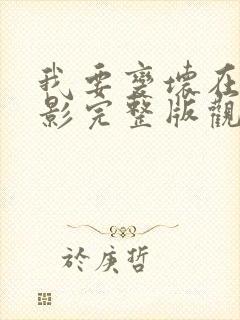 我要變壞在
影完整版觀
於庚哲